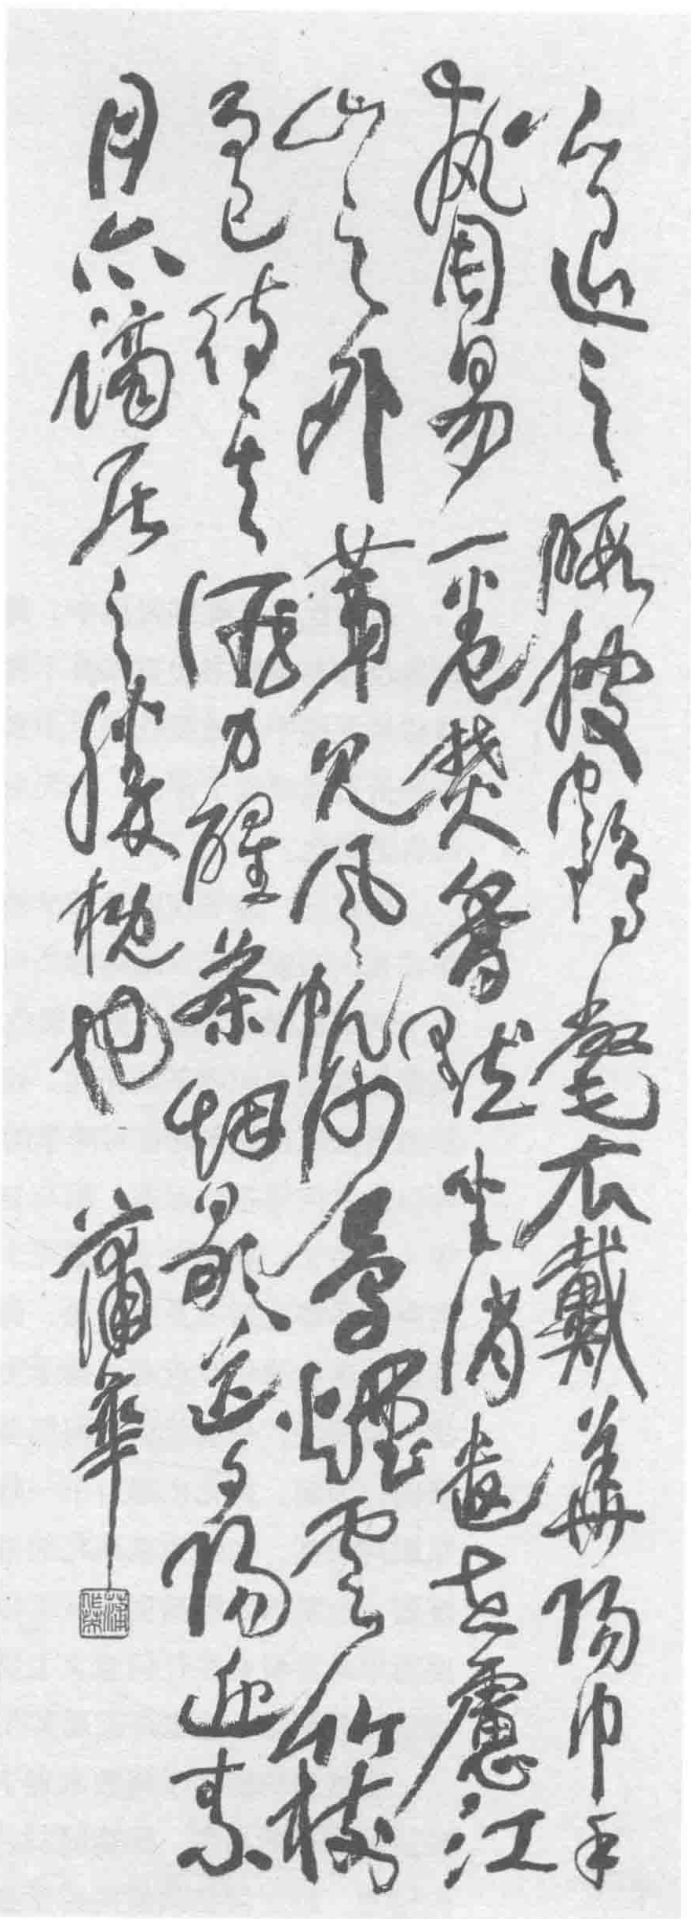 公退之暇披鶴氅衣戴華陽巾手
執周易一卷焚香默坐消遣世慮江
山之外第見風帆沙鳥煙雲竹樹
而已待其酒力醒茶烟歇送夕陽迎素
月亦謫居之勝概也 蒲華
蒲華